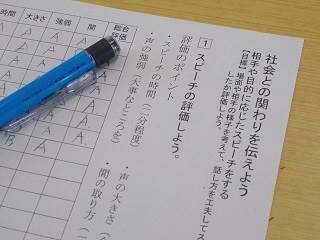 社会との関わりを伝えよう
相手や目的に応じたスピーチをする
【目標】場面や相手の様子を考えて、話し方を工夫してス
したか評価しよう。
1 スピーチの評価しよう。
評価のポイント
・スピーチの時間(二分程度)
・声の大きさ(
・声の強弱(大事なところを)
・間の取り方(
時間 大きさ 強弱 間 総合評価
A A A
A A A
A A
A
A
A
B A